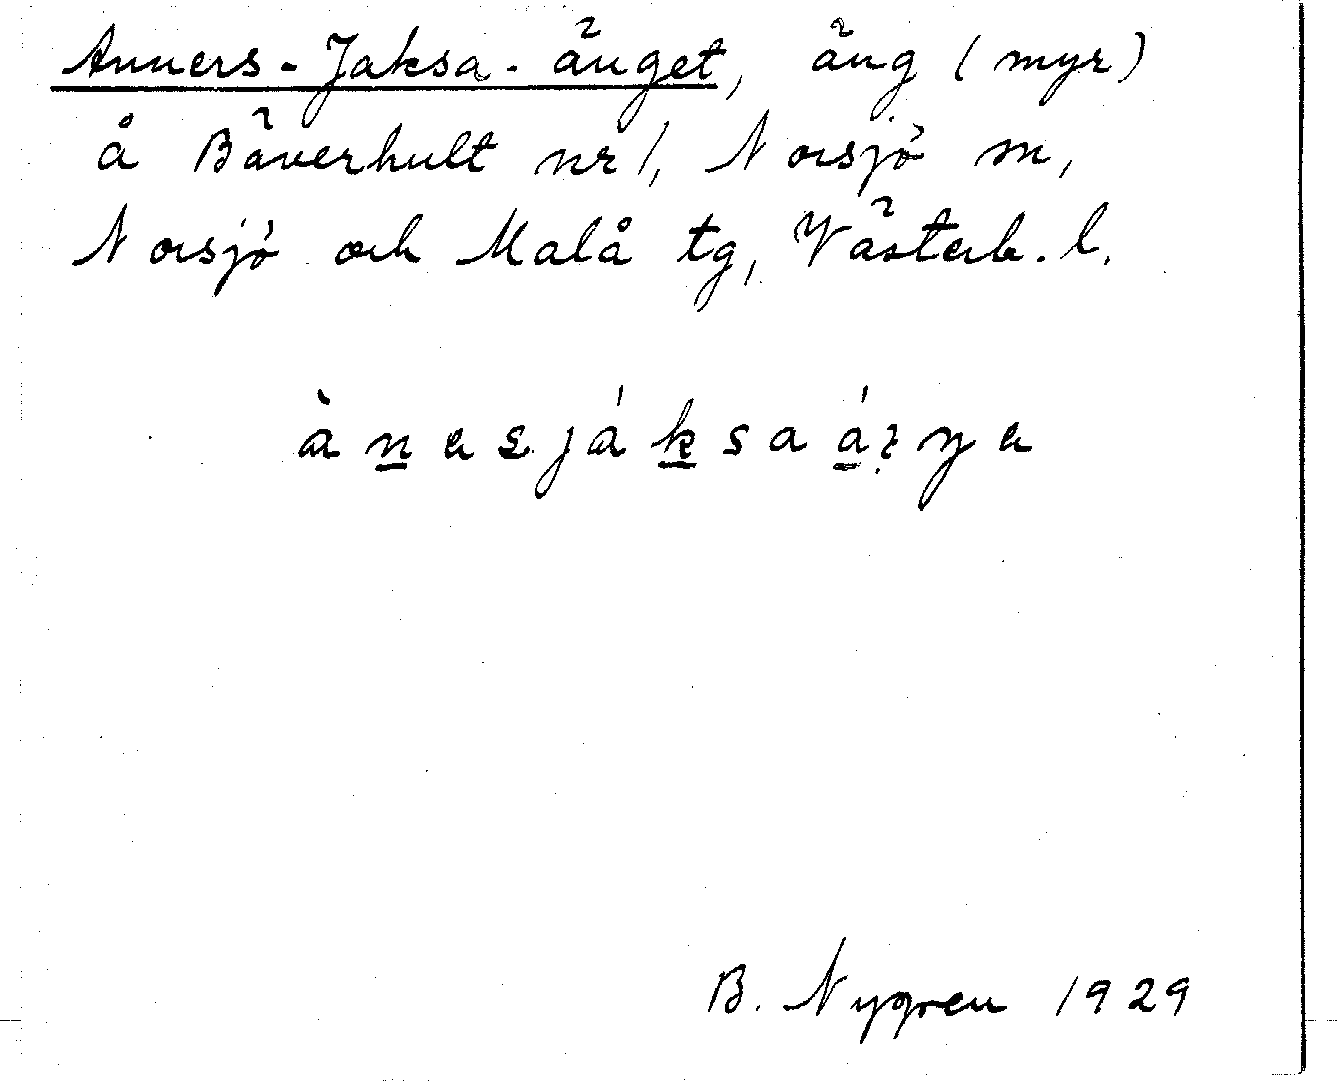 Anners-Jaksa-änget, äng (myr)
å Bäverhult nr 1, Norsjö sn,
Norsjö och Malå tg, Västerb. l.
B. Nygren 1929